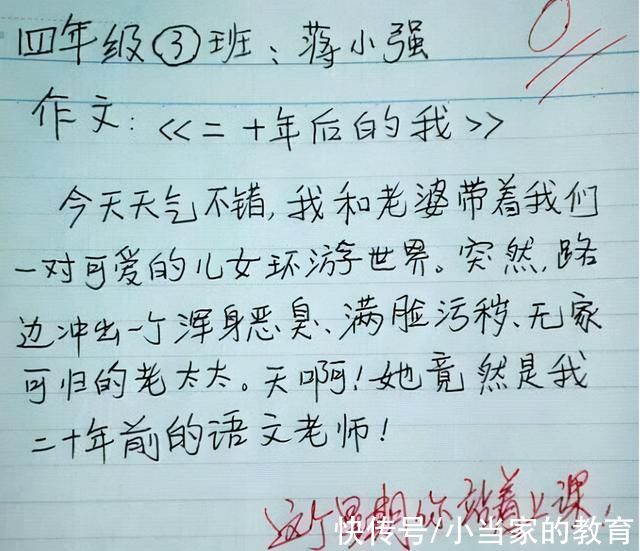 四年级③班:蒋小强
0
作文:《二十年后的我》
今天天气不错,我和老婆带着我们
一对可爱的儿女环游世界。突然,路
边冲出一个浑身恶臭、满脸污秽、无家
可归的老太太。天啊!她竟然是我
二十年前的语文老师!
这个星期你站着上课,
快传号/小当家的教育